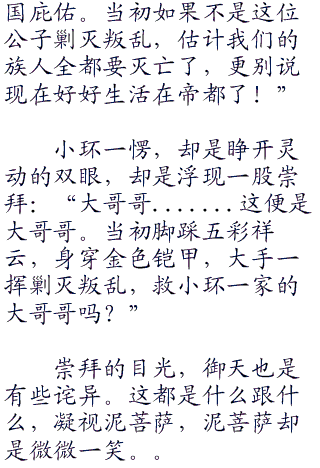 国庇佑。当初如果不是这位
公子剿灭叛乱，估计我们的
族人全都要灭亡了，更别说
现在好好生活在帝都了！”
小环一愣，却是睁开灵
动的双眼，却是浮现一股崇
拜：“大哥哥.......这便是
大哥哥。当初脚踩五彩祥
云，身穿金色铠甲，大手一
挥剿灭叛乱，救小环一家的
大哥哥吗？”
崇拜的目光，御天也是
有些诧异。这都是什么跟什
么，凝视泥菩萨，泥菩萨却
是微微一笑。。